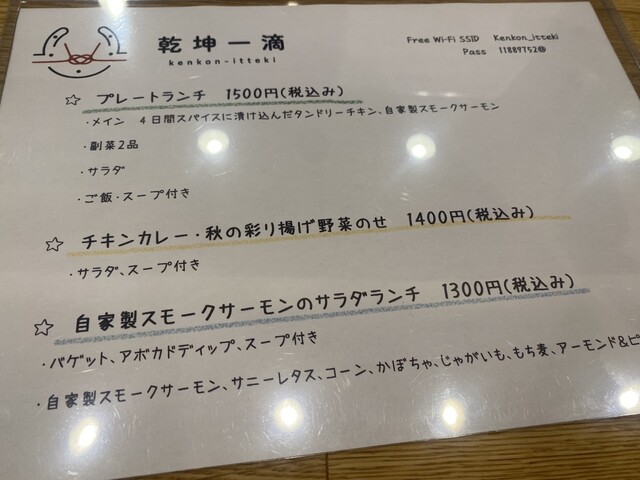 乾坤一滴
kenkon-itteki
Free Wi-Fi SSID Kenkon_itteki
Pass 11889752@
☆ プレートランチ 1500円(税込み)
・メイン 4日間スパイスに漬け込んだタンドリーチキン、自家製スモークサーモン
・副菜2品
・サラダ
・ご飯・スープ付き
☆ チキンカレー・秋の彩り揚げ野菜のせ 1400円(税込み)
・サラダ、スープ付き
☆ 自家製スモークサーモンのサラダランチ 1300円(税込み)
・バゲット、アボカドディップ、スープ付き
・自家製スモークサーモン、サニーレタス、コーン、かぼちゃ、じゃがいも、もち麦、アーモンド&ピ